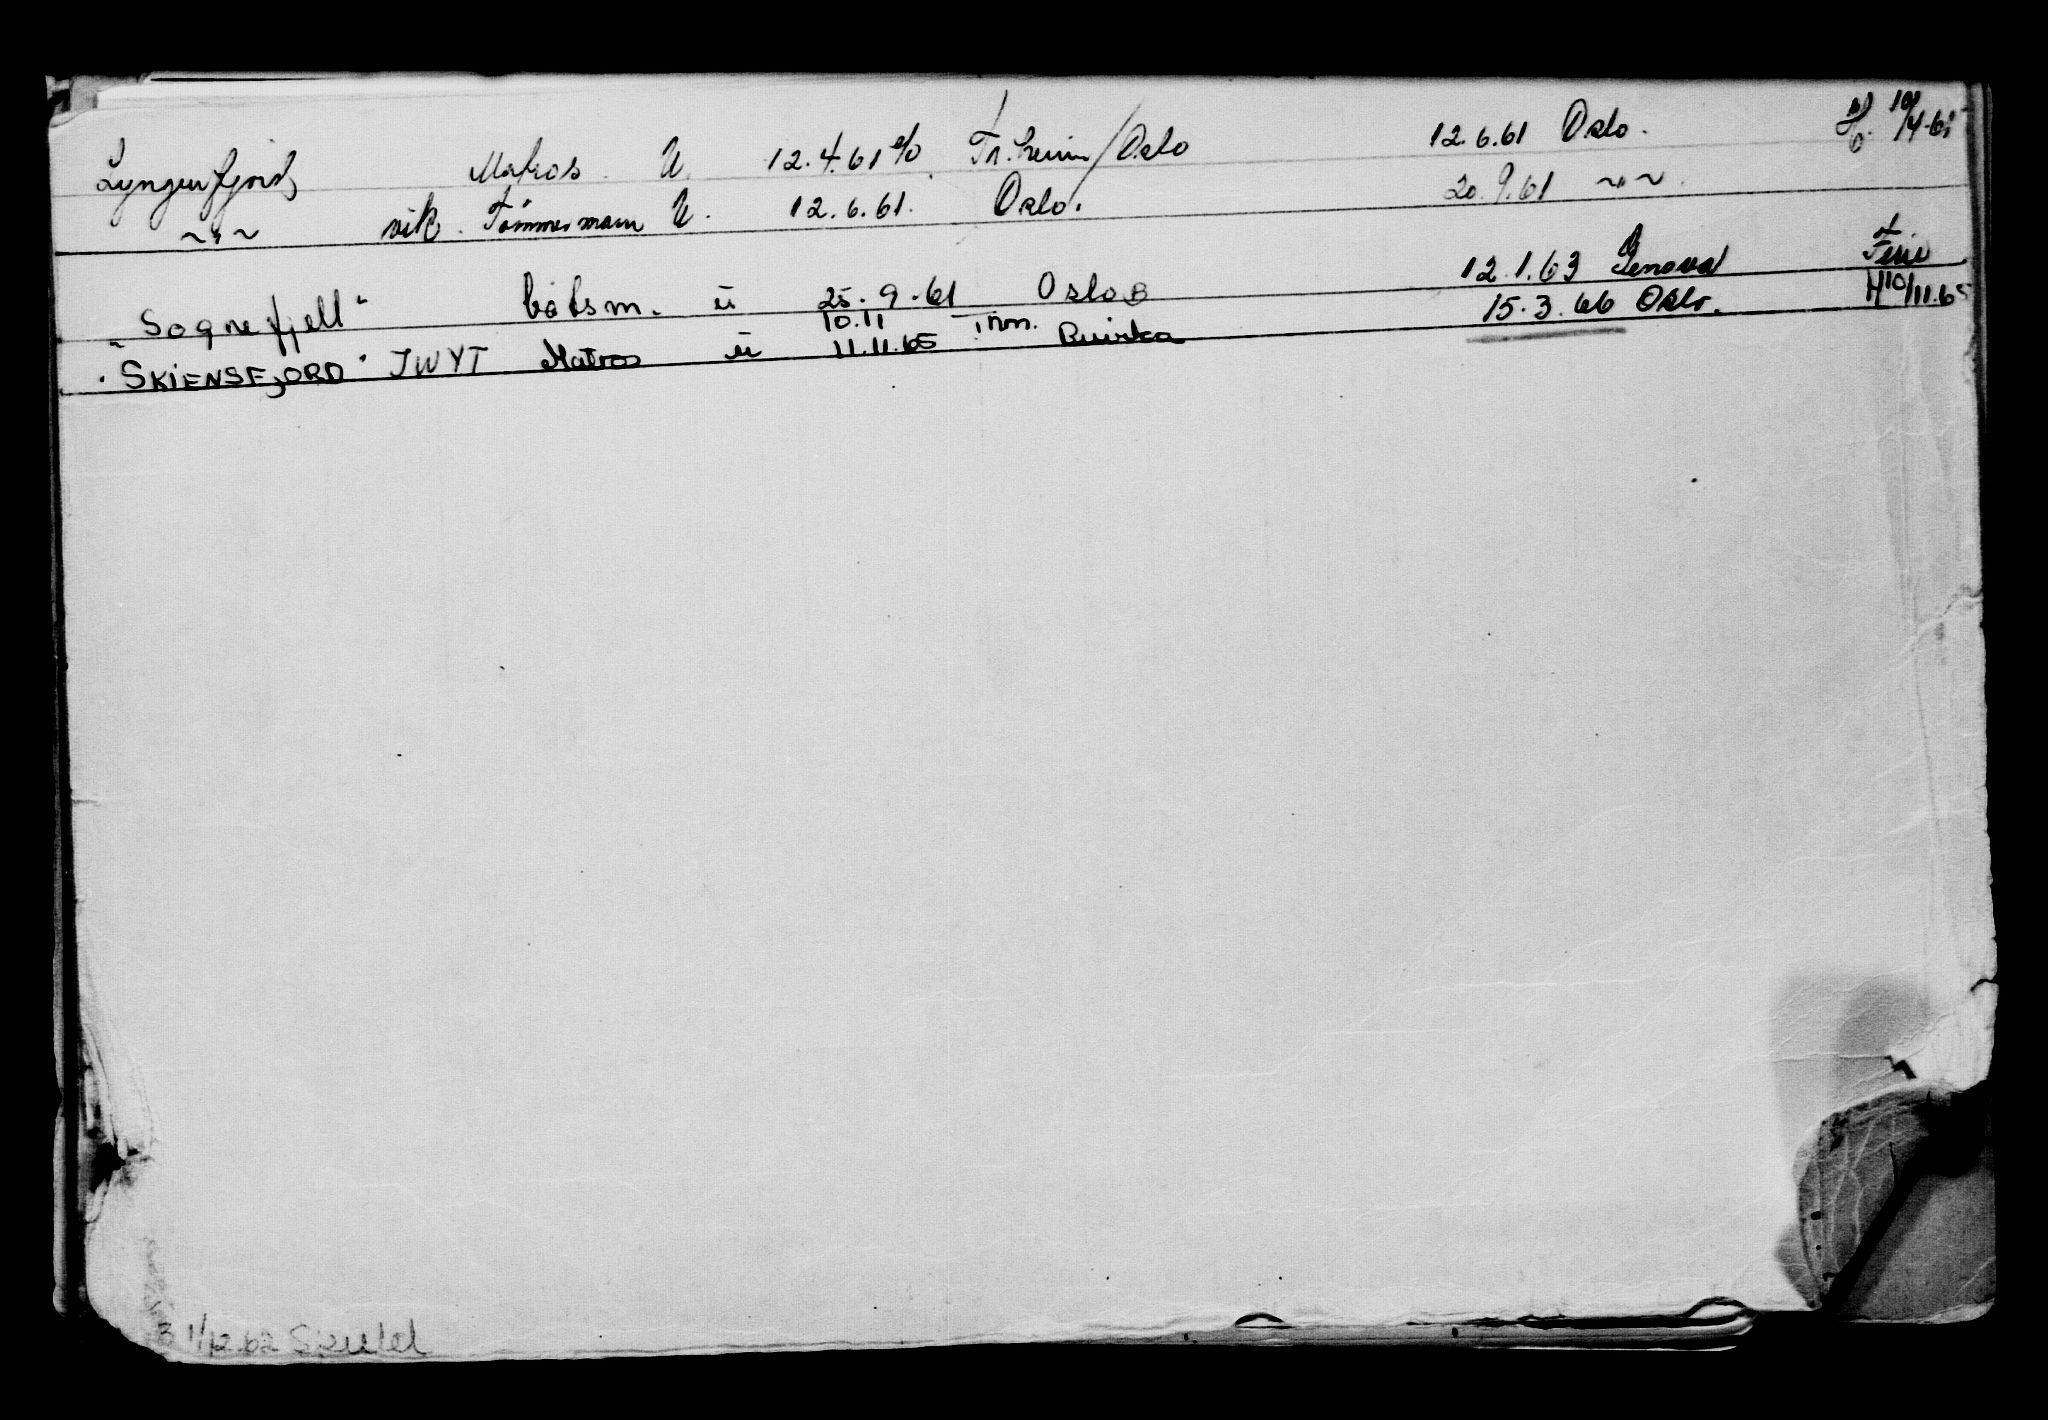 Lyngenfjord Matros U 12.4.61 Tr.heim/Oslo 12.6.61 Oslo. 10/4-61
~"~ vik. Tømmermann U. 12.6.61. Oslo. 20.9.61 ~"~
"Sognefjell" båtsm. ü 25.9.61 Oslo B 12.1.63 Genova Ferie
"SKIENSFJORD" JWYT Matros ü 10.11 11.11.65 Trm. 15.3.66 Oslo. H10/11.65
B 1/12.62